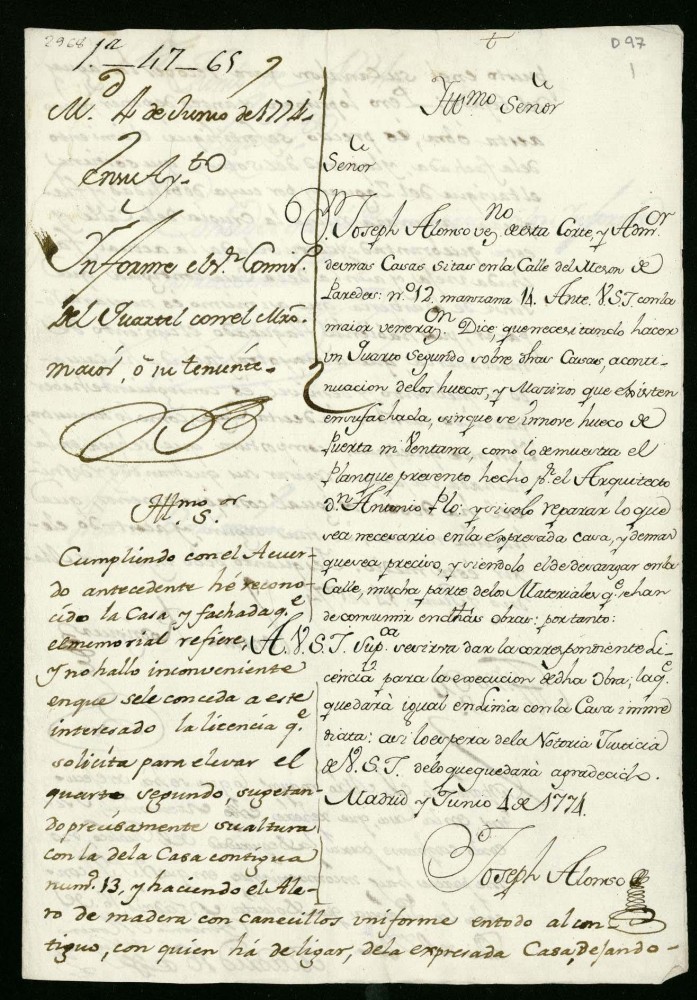 2968
1.ª — 47 — 65
D97
1
M.d 4 de Junio de 1774
En su Ay.to
Informe el S.r Comis.o
del Quartel con el Mro.
maior, ô su tenente.
Yll.mo S.or
Cumpliendo con el Acuer-
do antecedente hé recono-
cido la Casa y fachada q.e
el memorial refiere,
y no hallo inconveniente
en que se le conceda a este
interesado la licencia q.e
solicita para elevar el
quarto segundo, sugetan-
do precisamente su altura
con la de la Casa contigua
num.o 13, y haciendo el Ale-
ro de madera con canecillos uniforme en todo al con-
tiguo, con quien há de ligar, de la expresada Casa, dejando-
Yll.mo Señor
Señor
D. Joseph Alonso vez.no de esta Corte, y Adm.or
de unas Casas sitas en la Calle del Meson de
Paredes: n.o 12. manzana 14. Ante. V.S.I. con la
maior venera.on Dice que necesitando hacer
un Quarto Segundo sobre dhas Casas, a conti-
nuacion de los huecos, y Mazizos que existen
en su fachada, sin que se innove hueco de
Puerta ni Ventana, como lo demuestra el
Plan que presento hecho p.r el Arquitecto
d.n Antonio Plo: y si solo reparar lo que
sea necesario en la expresada casa, y demas
que sea preciso, y siendolo el de descargar en la
Calle, mucha parte de los Materiales q.e se han
de consumir en dhas obras: por tanto:
A. V.S.I. Sup.ca se sirva dar la correspondiente Li-
cencia para la execucion de dha Obra; la q.e
quedarà igual en Linia con la Casa inme
diata: asi lo espera de la Notoria Justicia
de V.S.I. de lo que quedarà agradecido.
Madrid y Junio 4 de 1774.
Joseph Alonso